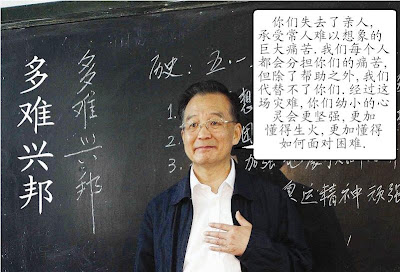 多难兴邦
多难兴邦
历史：五.一
1.
2.
3.
想
加强
奥运精神 顽强
你们失去了亲人,
承受常人难以想象的
巨大痛苦.我们每个人
都会分担你们的痛苦,
但除了帮助之外,我们
代替不了你们.经过这
场灾难,你们幼小的心
灵会更坚强.更加
懂得生火,更加懂得
如何面对困难.